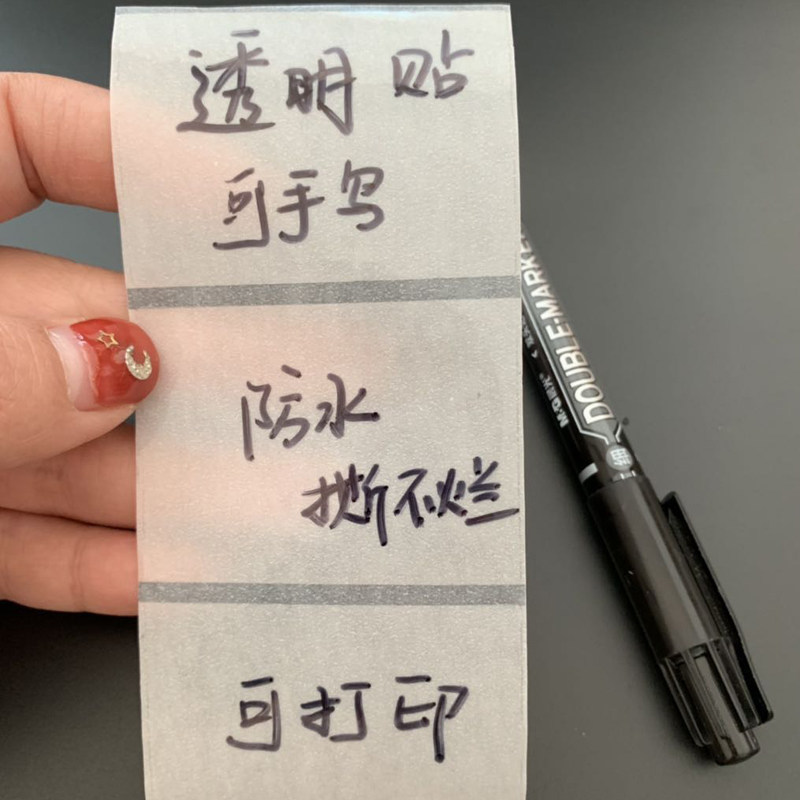 透明贴
可手写
防水
撕不烂
可打印
DOUBLE-MARKE
M&G晨光
细